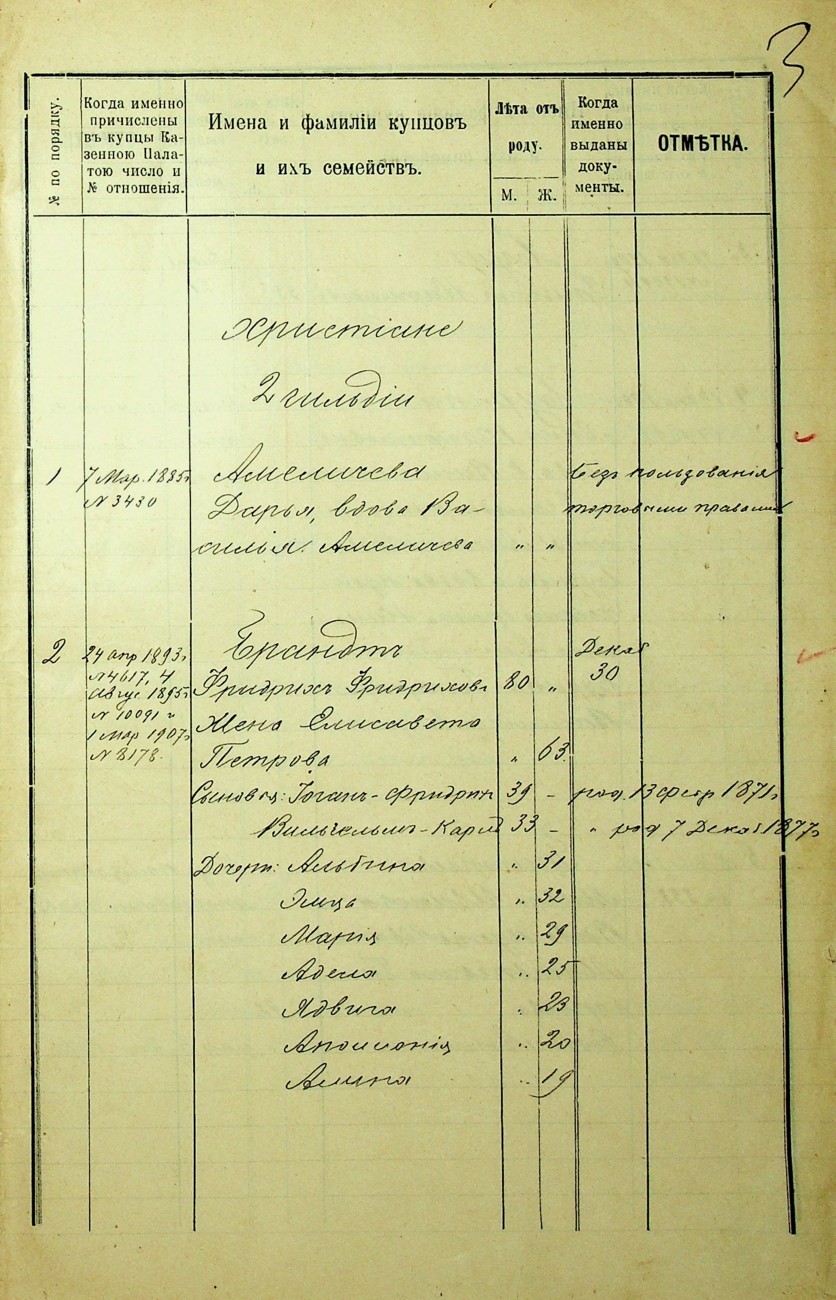 3
№ по порядку.
Когда именно
причислены
въ купцы Ка-
зенною Пала-
тою число и
№ отношенія.
Имена и фамиліи купцовъ
и ихъ семействъ.
Лѣта отъ
роду.
М. Ж.
Когда
именно
выданы
доку-
менты.
ОТМѢТКА.
Христіане
2 гильдіи
1 7 Мар. 1885 г Амеличева Безъ пользованія
№ 3430 Дарья, вдова Ва- торговыми правами
силья Амеличева " "
2 24 апр 1893 г Брандтъ Декаб
№ 4617, 4 30
Авгус 1895 г Фридрихъ Фридрихов. 80 "
№ 10091 и Жена Елисавета
1 Мар 1907 г Петрова " 63.
№ 8178.
Сыновья: Іоганъ-Фридрих 39 – род. 13 февр 1871 г
Вильгельмъ-Карлъ 33 – " род 7 Декаб 1877 г
Дочери: Альбина " 31
Эмца " 32
Марія " 29
Адела " 25
Ядвига " 23
Аполлонія " 20
Алина " 19